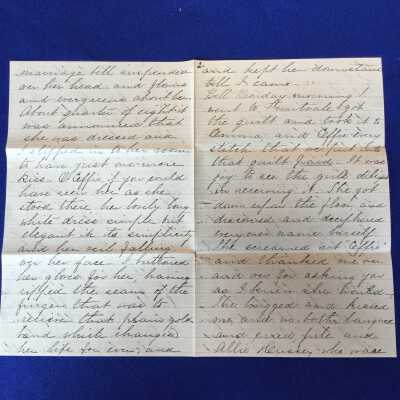 marriage bell suspended
over her head and flowers
and evergreens about her.
About quarter of eight it
was announced that
she was dressed and
I slipped in to her room
to have just one more
kiss. O Effie if you could
have seen her as she
stood there her lovely long
white dress simple but
elegant in its simplicity
and her veil falling
over her face. I buttoned
her glove for her, having
ripped the seam of the
finger that was to
receive that plain gold
band which changed
her life for ever; and
2
and kept her downstairs
till I came.
Well Monday morning I
went to got
the quilt and took it to
Emma, and Effie every
stitch that we put in
that quilt paid. It was
joy to see the girls delight
in receiving it. She got
down upon the floor and
discovered and deciphered
everyone's name herself.
She screamed out Effie
and thanked me over
and over for asking you
as I knew she wanted
She hugged and kissed
me, and we both laughed
and cried first and
Allie Hussey who was